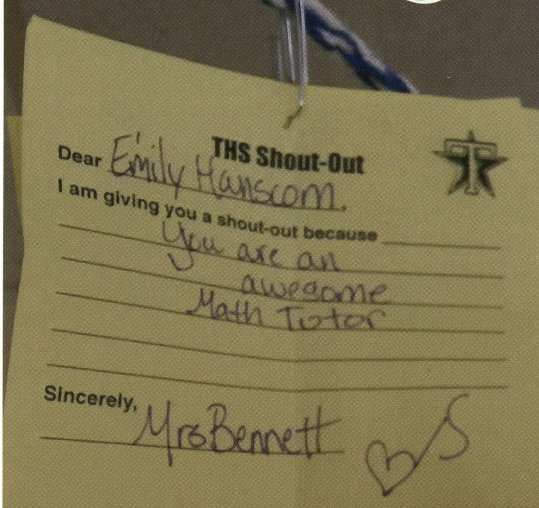 THS Shout-Out
Dear Emily Hanscom.
I am giving you a shout-out because
You are an
awesome
Math Tutor
Sincerely,
Mrs Bennett